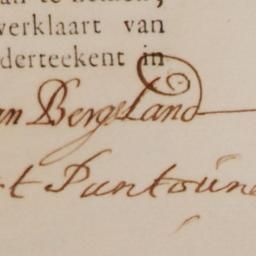 verklaart van
derteekent in
an BergsLand
t Puntoùne